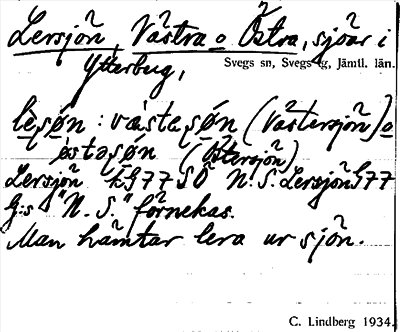 Lersjön, Västra o Östra, sjöar i
Ytterberg,
Svegs sn, Svegs tg, Jämtl. län.
lesøn : västasøn (Västersjön) o
östasøn (Östersjön)
Lersjön k G77 SÖ N. S. Lersjön G77
G:s "N. S." förnekas.
Man hämtar lera ur sjön.
C. Lindberg 1934.